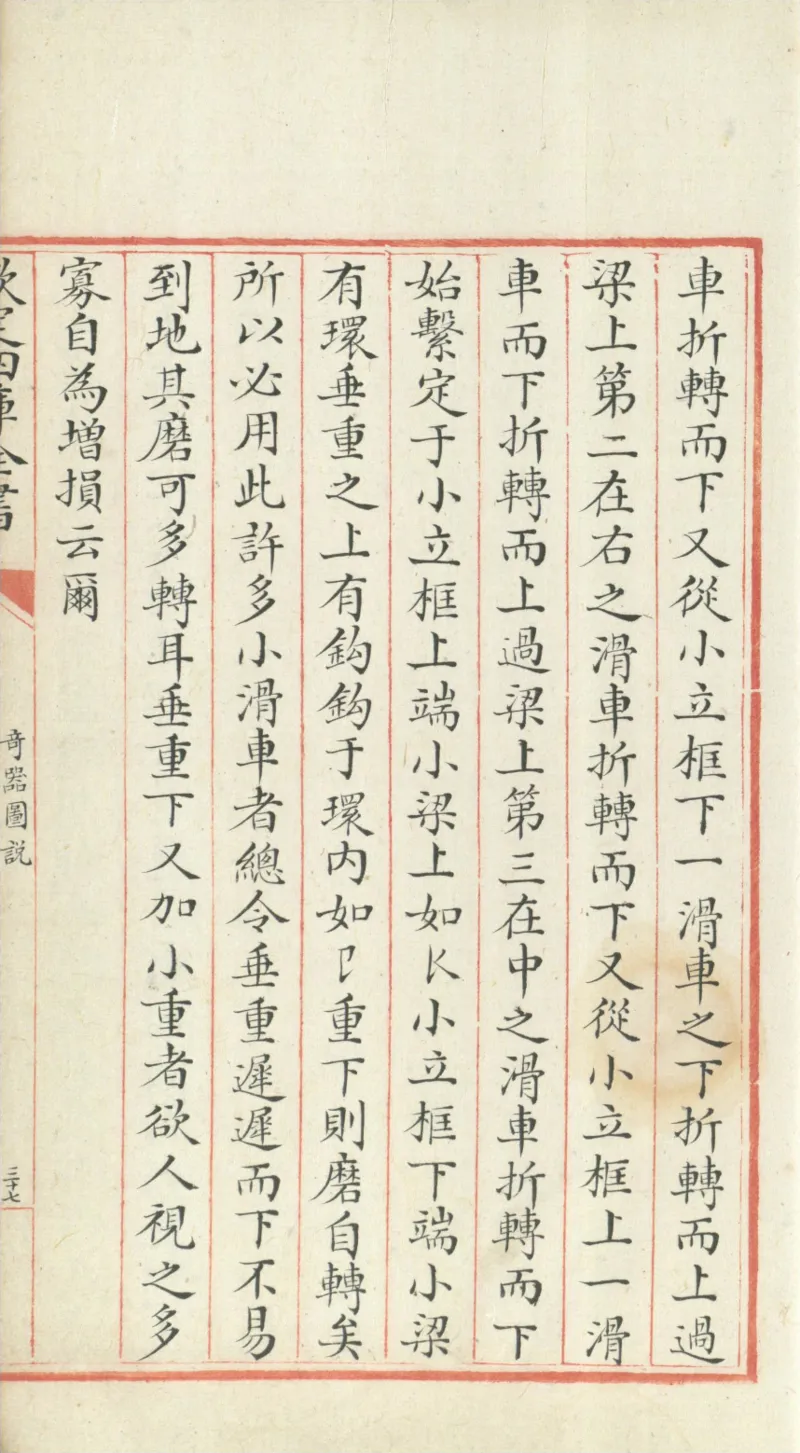 車折轉而下又從小立框下一滑車之下折轉而上過
梁上第二在右之滑車折轉而下又從小立框上一滑
車而下折轉而上過梁上第三在中之滑車折轉而下
始繫定于小立框上端小梁上如K小立框下端小梁
有環垂重之上有鈎鈎于環内如重下則磨自轉矣
所以必用此許多小滑車者總令垂重遲遲而下不易
到地其磨可多轉耳垂重下又加小重者欲人視之多
寡自為增損云爾
欽定四庫全書
奇器圖説
三十七